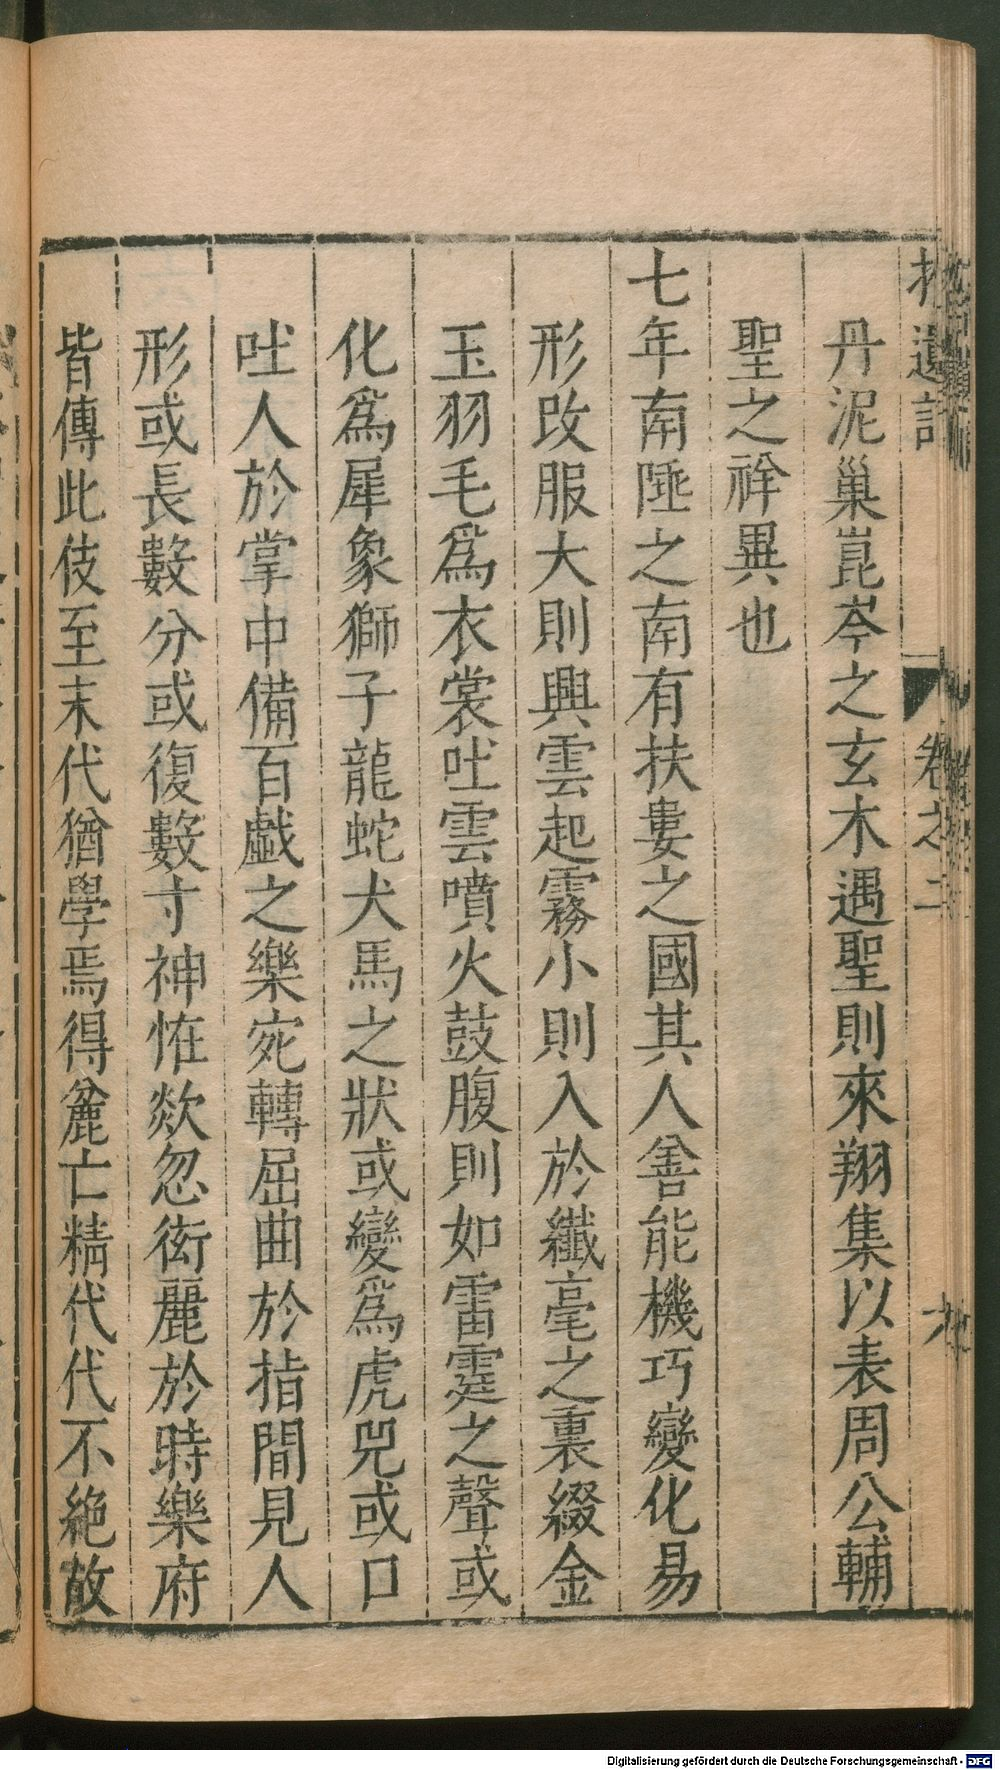 拾遺記 卷之二
丹泥巢崑岑之玄木遇聖則來翔集以表周公輔
聖之祥異也
七年南陲之南有扶婁之國其人善能機巧變化易
形改服大則興雲起霧小則入於纖毫之裏綴金
玉羽毛爲衣裳吐雲噴火鼓腹則如雷霆之聲或
化爲犀象獅子龍蛇犬馬之狀或變爲虎兕或口
吐人於掌中備百戲之樂宛轉屈曲於指間見人
形或長數分或復數寸神恠欻忽衒麗於時樂府
皆傳此伎至末代猶學焉得麄亡精代代不絕故
Digitalisierung gefördert durch die Deutsche Forschungsgemeinschaft - DFG